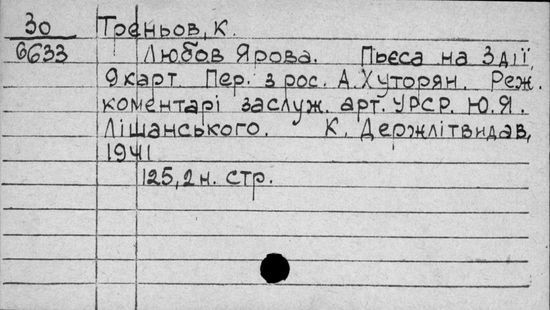 30 Треньов, К.
6633 Любов Ярова. Пьеса на 3 дії,
9 карт. Пер. з рос. А. Хуторян. Реж.
коментарі заслуж. арт. УРСР. Ю.Я.
Лішанського. К. Держлітвидав,
1941
125, 2 н. стр.